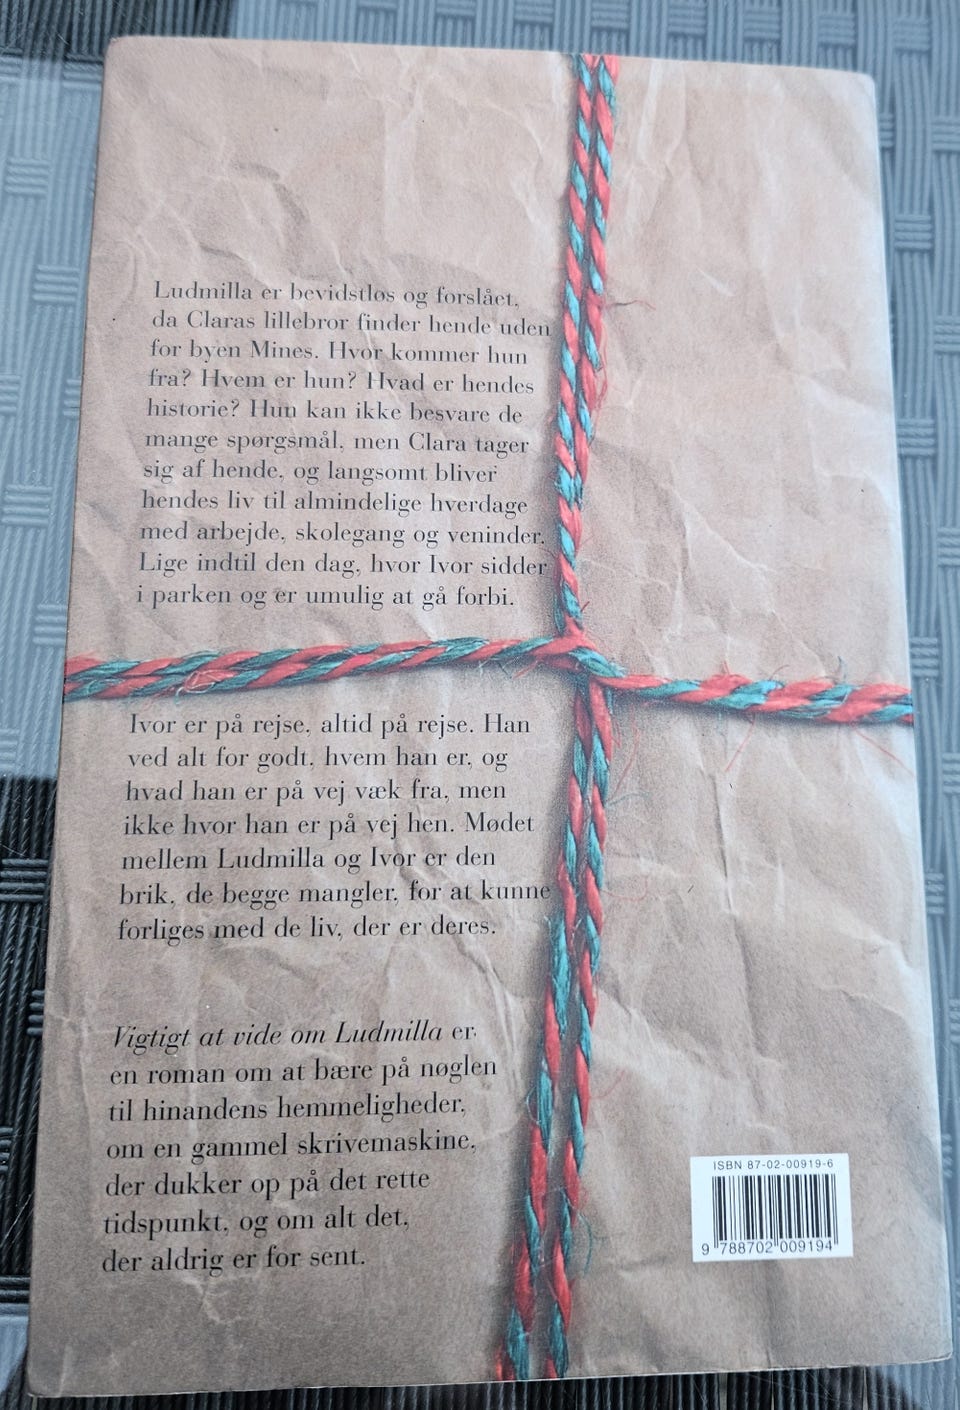 Ludmilla er bevidstløs og forslået,
da Claras lillebror finder hende uden
for byen Mines. Hvor kommer hun
fra? Hvem er hun? Hvad er hendes
historie? Hun kan ikke besvare de
mange spørgsmål, men Clara tager
sig af hende, og langsomt bliver
hendes liv til almindelige hverdage
med arbejde, skolegang og veninder.
Lige indtil den dag, hvor Ivor sidder
i parken og er umulig at gå forbi.
Ivor er på rejse, altid på rejse. Han
ved alt for godt, hvem han er, og
hvad han er på vej væk fra, men
ikke hvor han er på vej hen. Mødet
mellem Ludmilla og Ivor er den
brik, de begge mangler, for at kunne
forliges med de liv, der er deres.
Vigtigt at vide om Ludmilla er
en roman om at bære på nøglen
til hinandens hemmeligheder,
om en gammel skrivemaskine,
der dukker op på det rette
tidspunkt, og om alt det,
der aldrig er for sent.
ISBN 87-02-00919-6
9 788702 009194